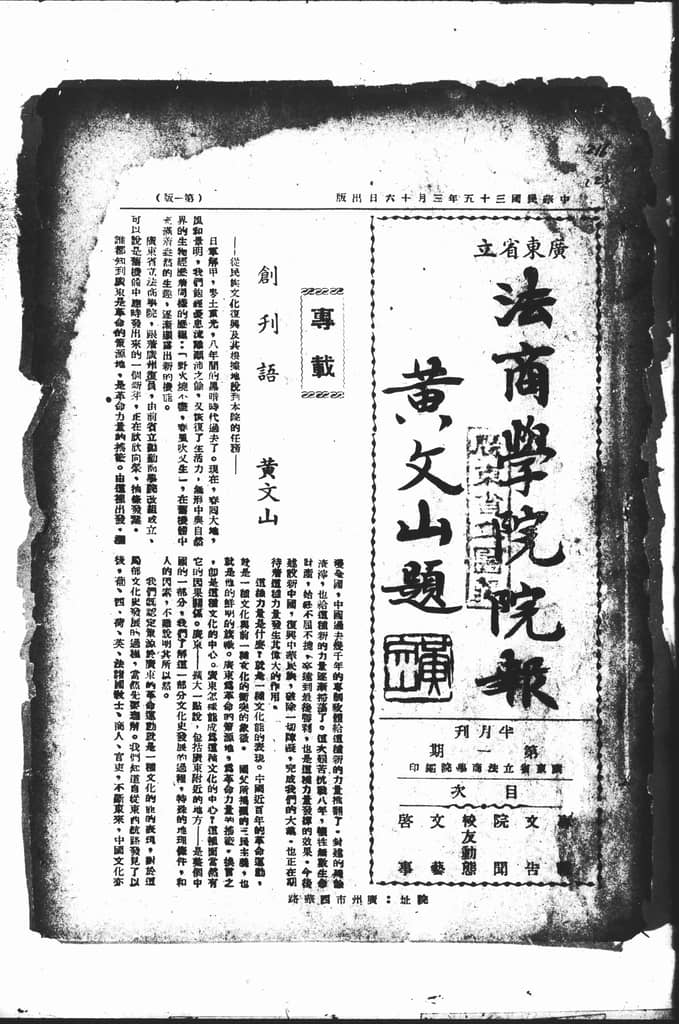 中華民國三十五年三月十六日出版
（第一版）
廣東省立
法商學院院報
黃文山題
半月刊
第一期
廣東省立法商學院編印
目次
院聞
校友動態
文藝
啓事
院址：廣州市西華路
專載
創刊語
黃文山
——從民族文化復興及其根據地說到本院的任務——
日軍解甲，寄土重光，八年間的黑暗時代過去了。現在，春囘大地，
風和景明，我們飽經憂患流離顛沛之餘，又恢復了生活力，無形中與自然
界的生物經歷着同樣的歷程：「野火燒不盡，春風吹又生」，在舊機體中
充滿着盎然的生趣，逐漸顯露出新的機能。
廣東省立法商學院，跟着廣州復員，由前省立勷勤商學院改組成立、
可以說是舊機體中應時發出來的一個新芽，正在欣欣向榮、抽條發葉。
誰都知到廣東是革命的策源地，是革命力量的搖籃。由這裡出發，瀰
漫全國，中國過去幾千年的專制政體給這種新的力量推翻了。封建的殘餘
渣滓，也給這種新的力量逐漸掃蕩了。這次艱苦抗戰八年，犧牲無數生命
財產，始終不屈不撓，卒達到最後勝利，也是這種力量發揮的效果。今後
建設新中國，復興中華民族，破除一切障礙，完成我們的大業。也正在期
待着這種力量發生其偉大的作用。
這種力量是什麼？就是一種文化能的表現。中國近百年的革命運動，
就是一種文化與前一種文化的衝突的象徵。 國父所揭櫫的三民主義，也
就是他的鮮明的旗幟。廣東爲革命的策源地，爲革命力量的搖籃。換言之
，卽是這種文化的中心。廣東怎樣能成爲這種文化的中心？這裡面當然有
它的因果關係。廣東——擴大一點說，包括廣東附近的地方——是整個中
國的一部分，我們了解這一部分文化史發展的過程，特殊的地理條件，和
人的因素，不難說明其所以然。
我們旣認定策源於廣東的革命運動就是一種文化的能的表現，對於這
局部文化史發展的過程，當然先要理解。我們知道自從東西航路發見了以
後，葡、西、荷、英、法諸國敎士、商人、官吏，不斷東來，中國文化亦